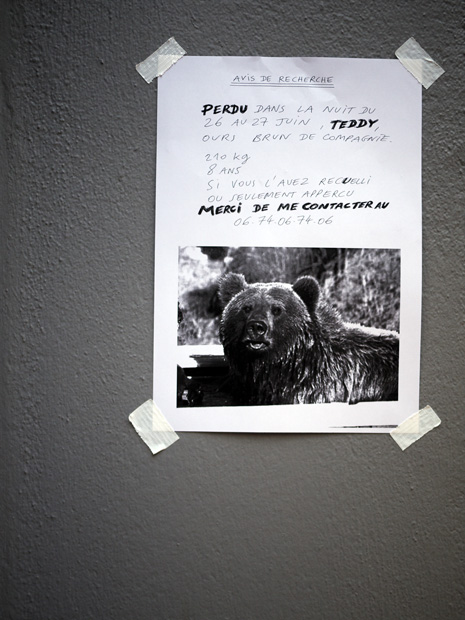 AVIS DE RECHERCHE
PERDU DANS LA NUIT DU
26 AU 27 JUIN, TEDDY,
OURS BRUN DE COMPAGNIE.
210 kg
8 ANS
SI VOUS L'AVEZ RECUEILLI
OU SEULEMENT APPERCU
MERCI DE ME CONTACTER AU
06.74.06.74.06